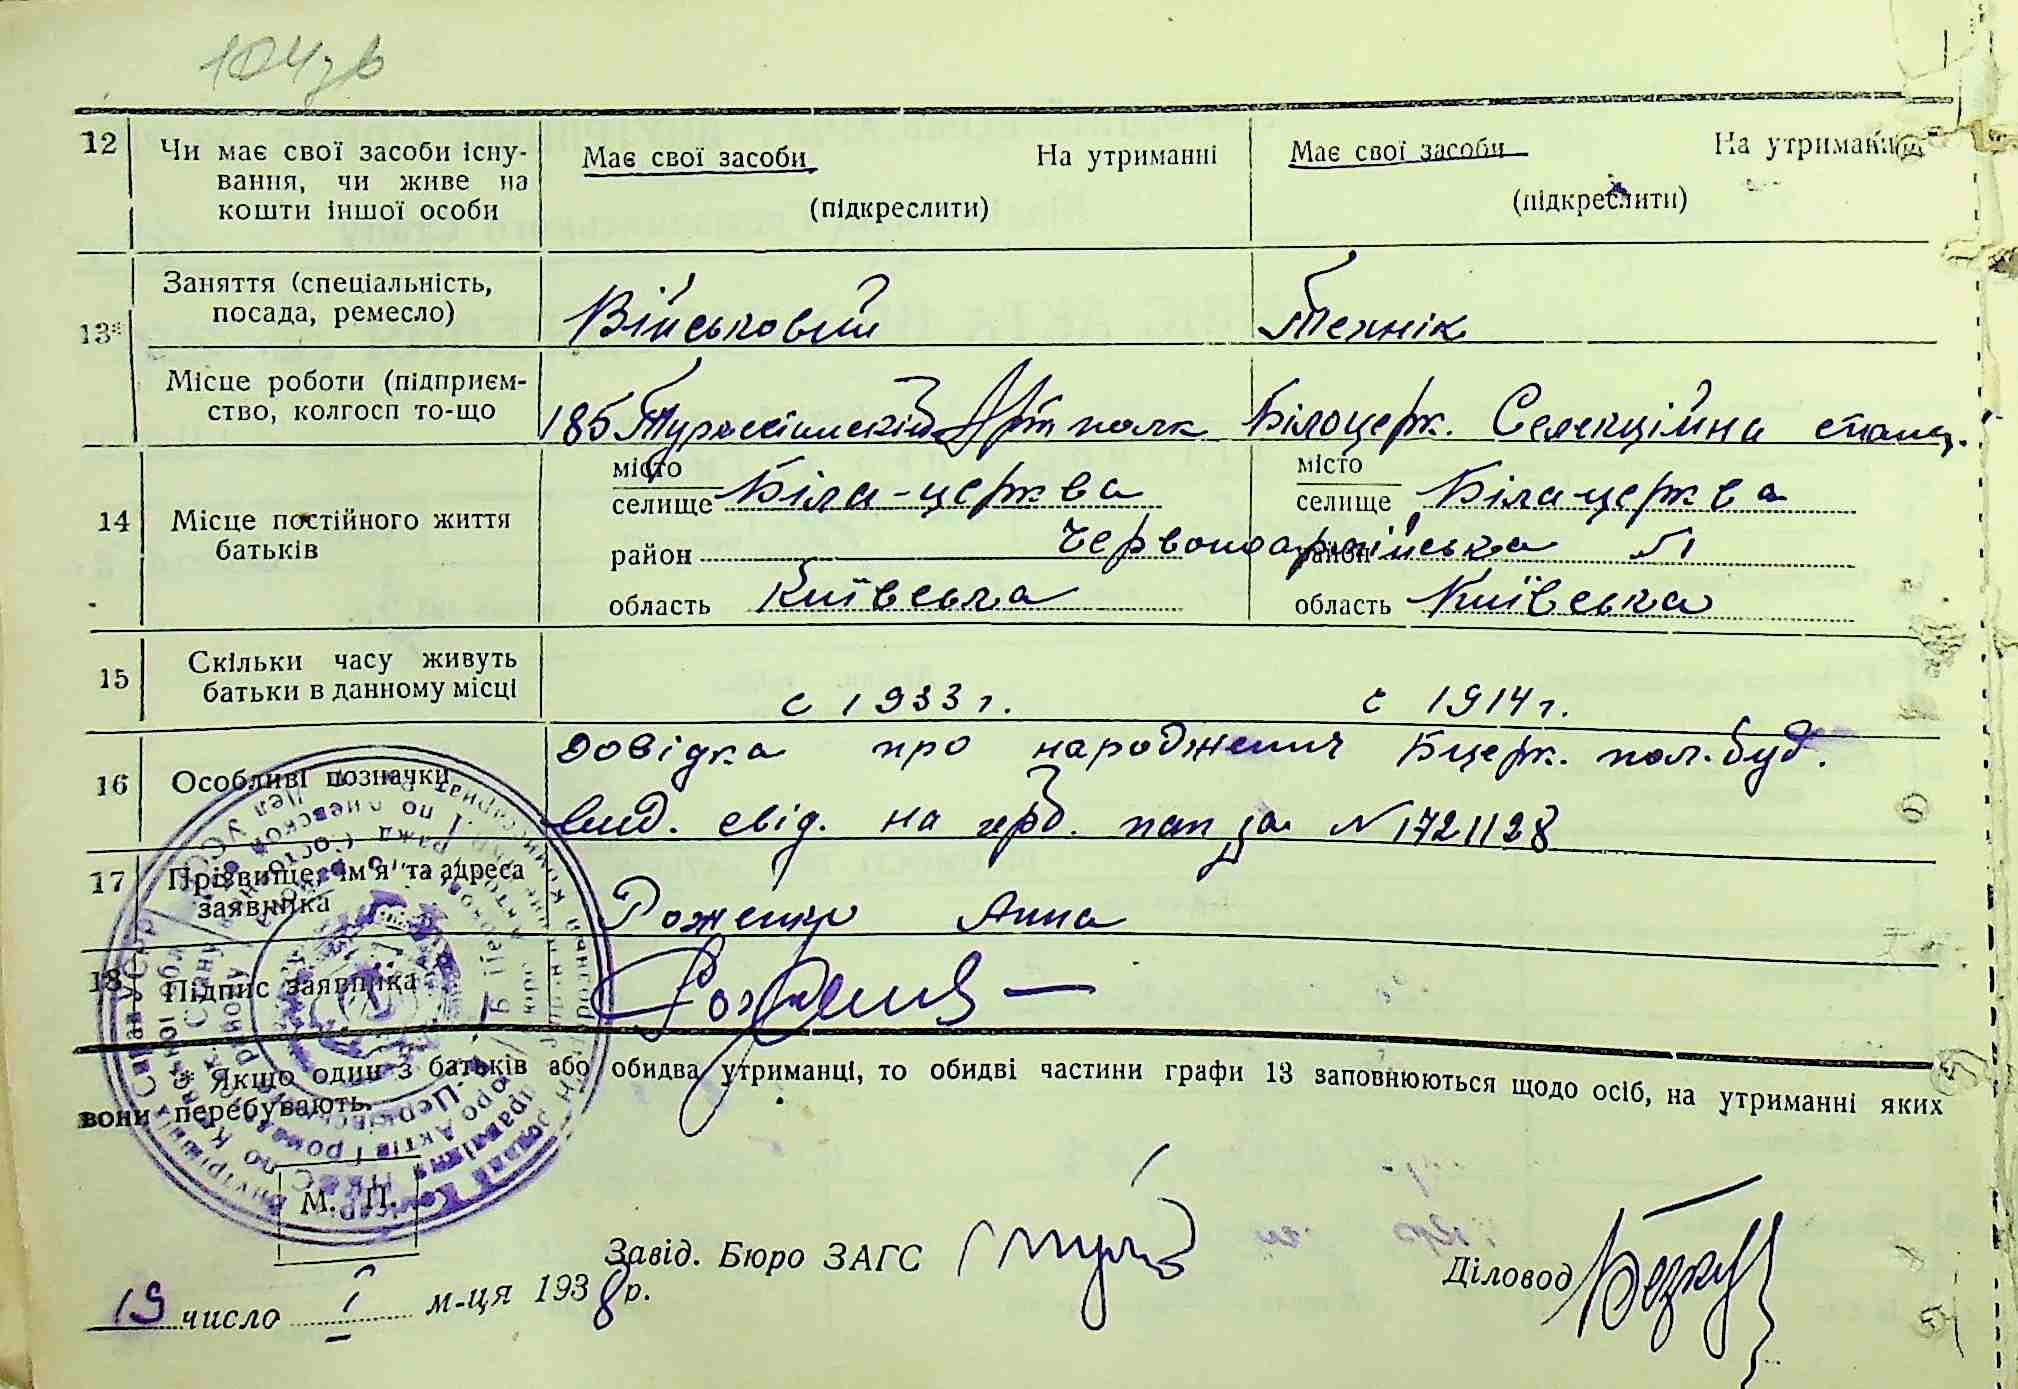 104зв
12
Чи має свої засоби існу-
вання, чи живе на
кошти іншої особи
Має свої засоби На утриманні
(підкреслити)
Має свої засоби На утриманні
(підкреслити)
13*
Заняття (спеціальність,
посада, ремесло)
Військовий
Технік
Місце роботи (підприєм-
ство, колгосп то-що
185 Арт полк
Білоцерк. Селекційна станц.
14
Місце постійного життя
батьків
місто
селище Біла-церква
місто
селище Біла-церква
район Червоноармійська 51
район
область Київська
область Київська
15
Скільки часу живуть
батьки в данному місці
с 1933 г.
с 1914 г.
16
Особливі позначки
Довідка про народження Бцерк. пол. буд.
вид. свід. на герб. пап за №1721128
17
Прізвище, ім'я та адреса
заявника
Роженко Анна
18
Підпис заявника
* Якщо один з батьків або обидва утриманці, то обидві частини графи 13 заповнюються щодо осіб, на утриманні яких
вони перебувають.
М. П.
Завід. Бюро ЗАГС
Діловод
19 число I м-ця 1938 р.